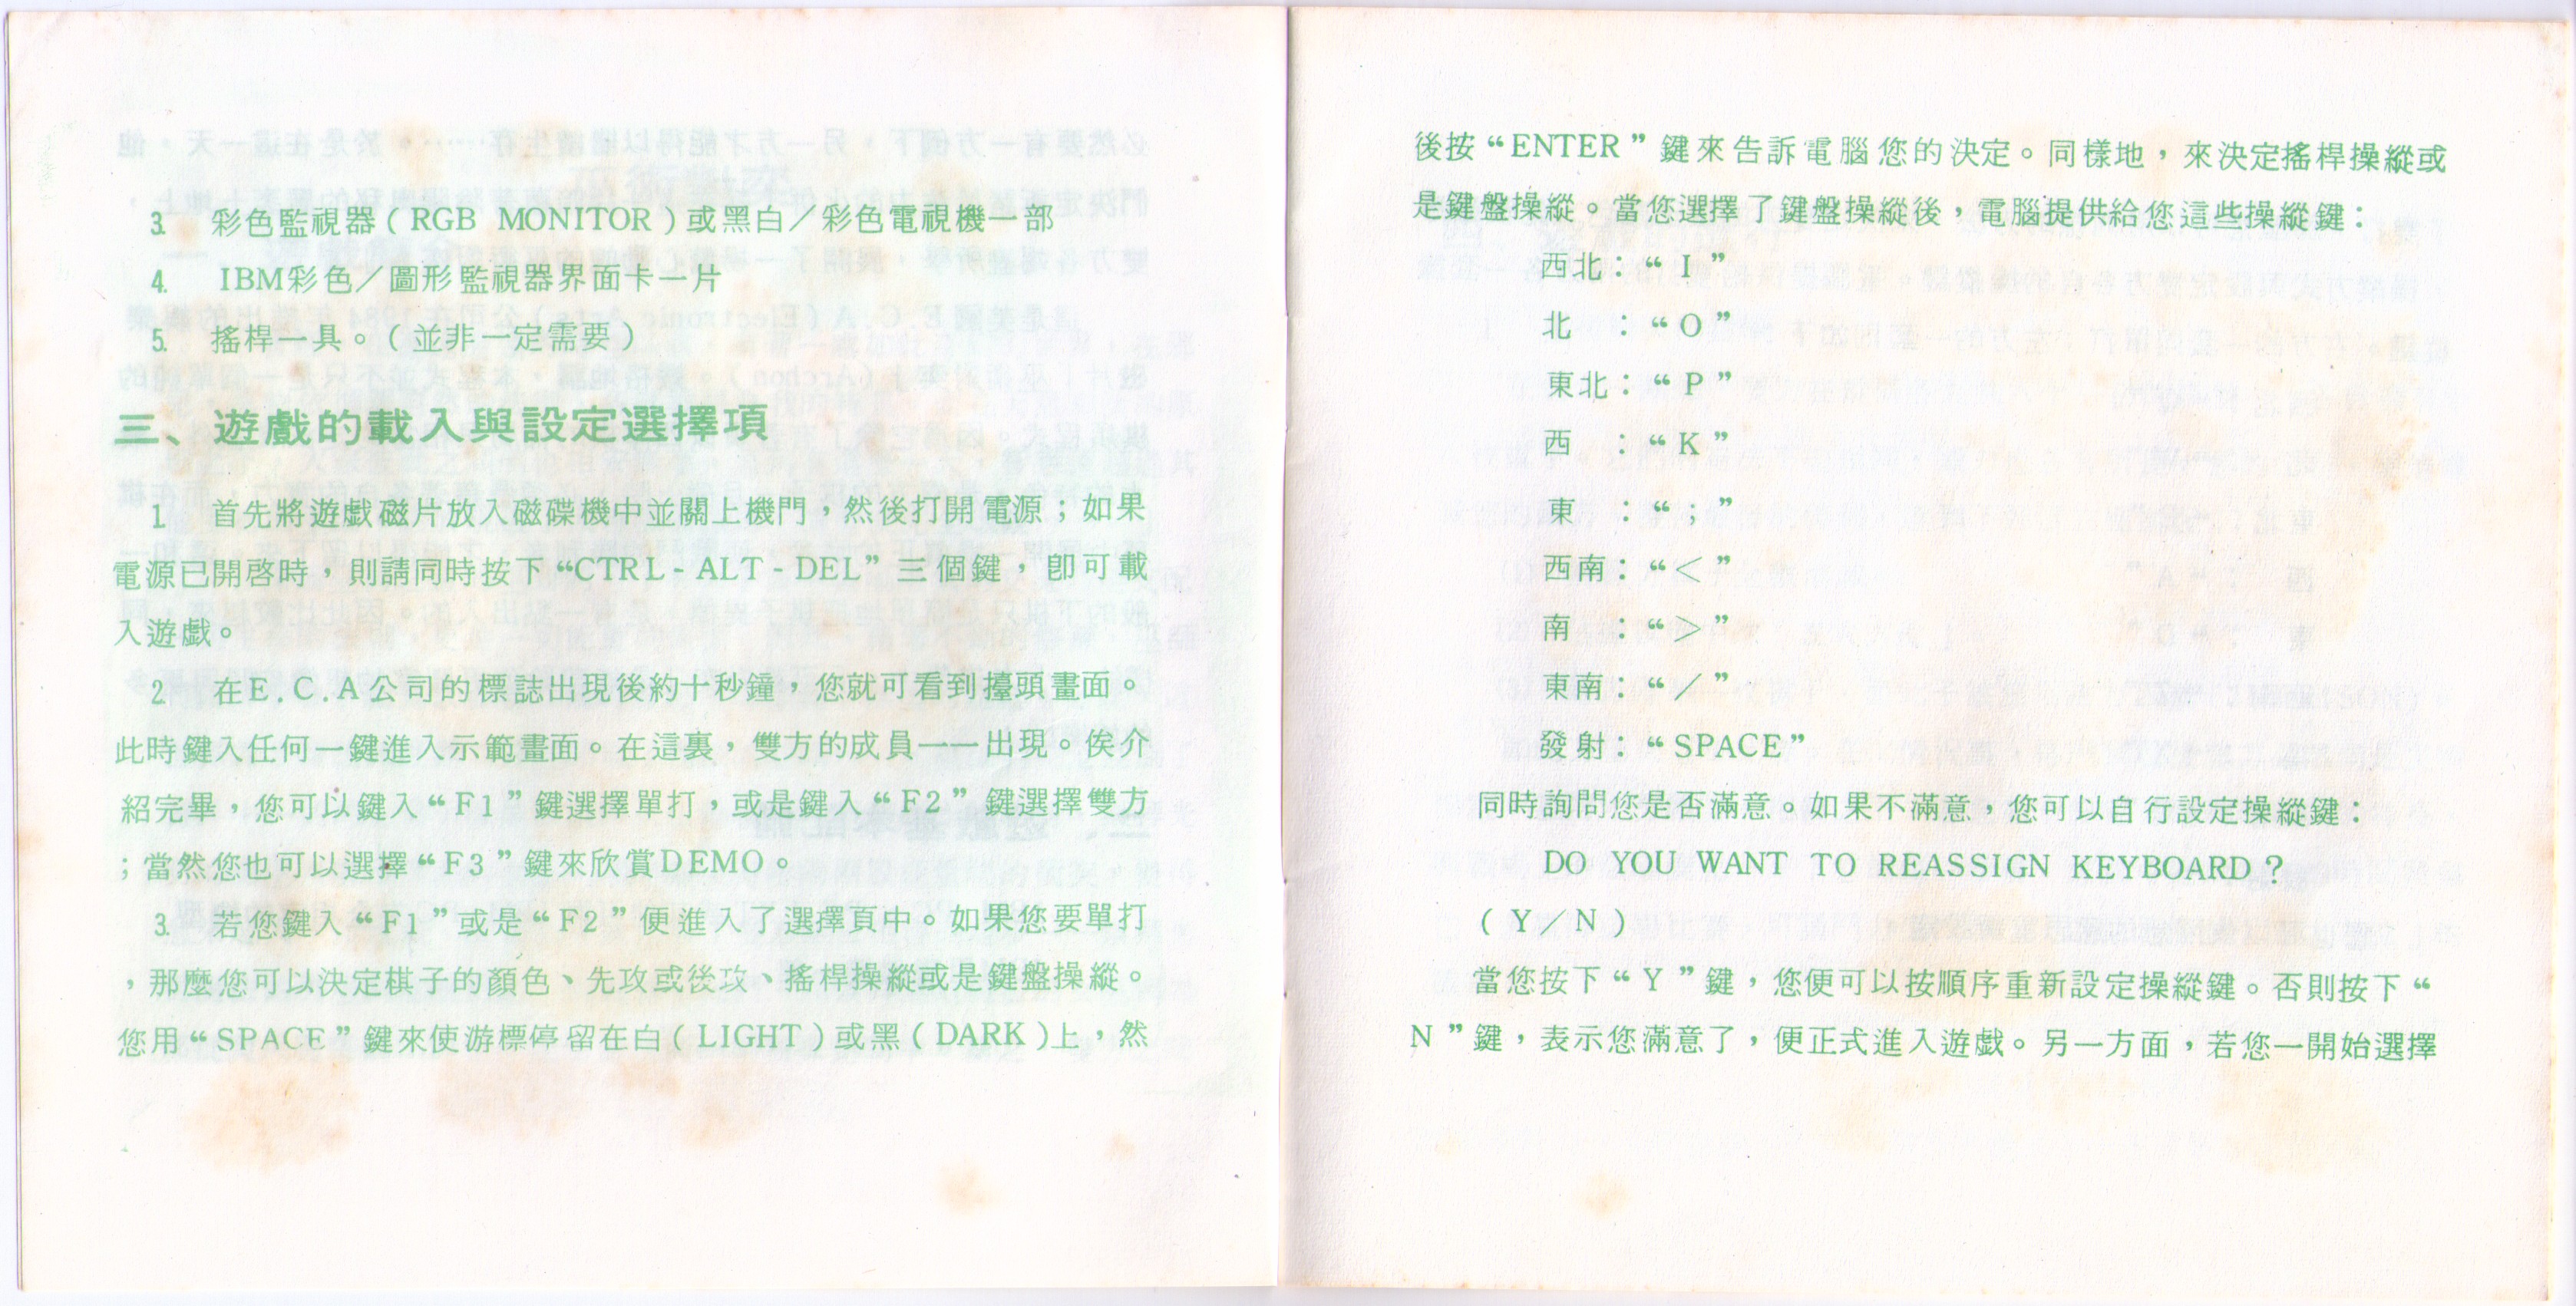 3. 彩色監視器(RGB MONITOR)或黑白／彩色電視機一部
4. IBM彩色／圖形監視器界面卡一片
5. 搖桿一具。(並非一定需要)
三、遊戲的載入與設定選擇項
1. 首先將遊戲磁片放入磁碟機中並關上機門，然後打開電源；如果
電源已開啓時，則請同時按下“CTRL-ALT-DEL”三個鍵，卽可載
入遊戲。
2. 在E.C.A公司的標誌出現後約十秒鐘，您就可看到擡頭畫面。
此時鍵入任何一鍵進入示範畫面。在這裏，雙方的成員一一出現。俟介
紹完畢，您可以鍵入“F1”鍵選擇單打，或是鍵入“F2”鍵選擇雙方
；當然您也可以選擇“F3”鍵來欣賞DEMO。
3. 若您鍵入“F1”或是“F2”便進入了選擇頁中。如果您要單打
，那麼您可以決定棋子的顏色、先攻或後攻、搖桿操縱或是鍵盤操縱。
您用“SPACE”鍵來使游標停留在白(LIGHT)或黑(DARK)上，然
後按“ENTER”鍵來告訴電腦您的決定。同樣地，來決定搖桿操縱或
是鍵盤操縱。當您選擇了鍵盤操縱後，電腦提供給您這些操縱鍵：
西北：“I”
北　：“O”
東北：“P”
西　：“K”
東　：“；”
西南：“＜”
南　：“＞”
東南：“／”
發射：“SPACE”
同時詢問您是否滿意。如果不滿意，您可以自行設定操縱鍵：
DO YOU WANT TO REASSIGN KEYBOARD？
(Y／N)
當您按下“Y”鍵，您便可以按順序重新設定操縱鍵。否則按下“
N”鍵，表示您滿意了，便正式進入遊戲。另一方面，若您一開始選擇